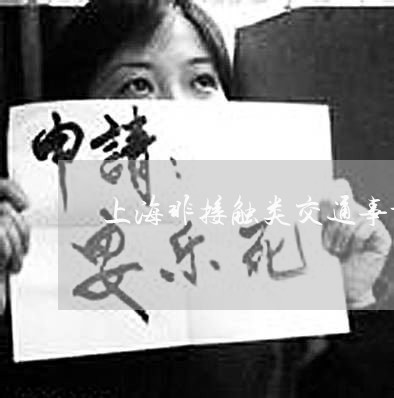 申請：
上海非接触类交通事
安乐死